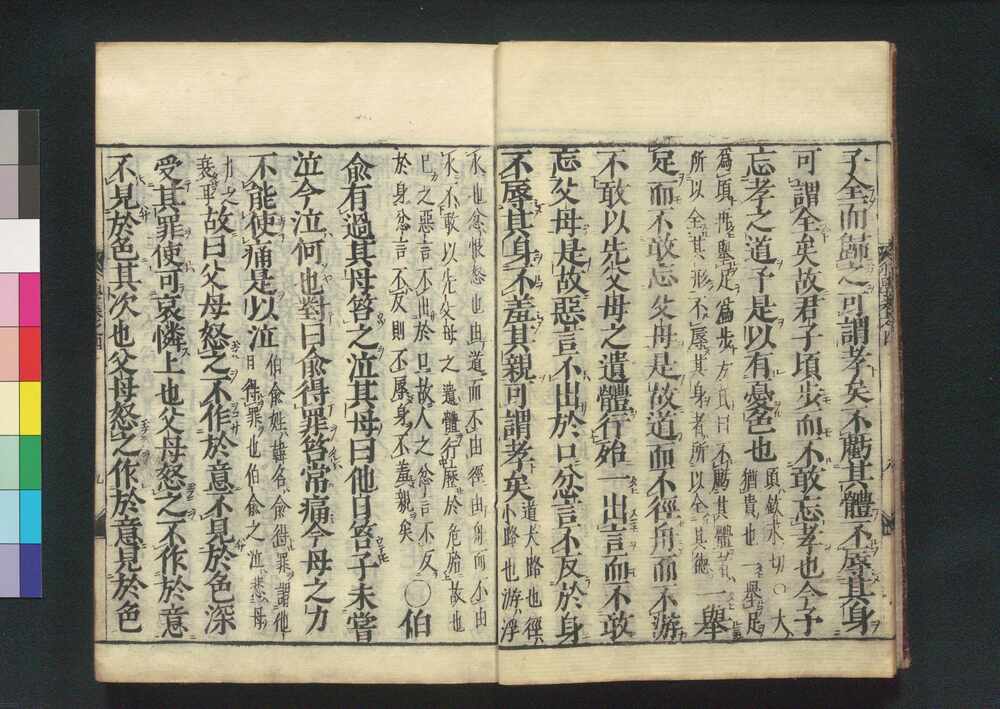 子全而歸之可謂孝矣不虧其體不辱其身
可謂全矣故君子頃步而不敢忘孝也今予
忘孝之道予是以有憂色也 頃歎水切○大
猶貴也 一舉足
爲頃再舉足爲步方氏曰不虧其體
所以全其形不辱其身者所以全其德 一舉
足而不敢忘父母是故道而不徑舟而不游
不敢以先父母之遺體行殆一出言而不敢
忘父母是故惡言不出於口忿言不反於身
不辱其身不羞其親可謂孝矣 道大路也徑
小路也游浮
水也忿恨怒也由道而不由徑由舟而不由
水不敢以先父母之遺體行歷於危殆故也
己之惡言不出於口故人之忿言不反
於身忿言不反則不辱身不羞親矣 ○伯
俞有過其母笞之泣其母曰他日笞子未嘗
泣今泣何也對曰俞得罪笞常痛今母之力
不能使痛是以泣 伯俞姓韓名俞得罪謂他
日得罪也伯俞之泣悲母
力之
衰耳 故曰父母怒之不作於意不見於色深
受其罪使可哀憐上也父母怒之不作於意
不見於色其次也父母怒之作於意見於色